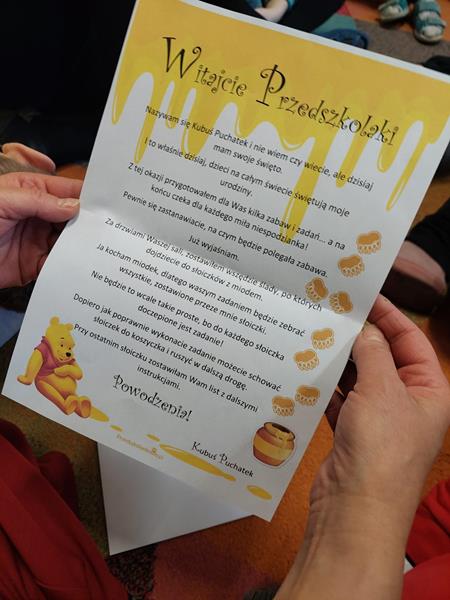 Witajcie Przedszkolaki
Nazywam się Kubuś Puchatek i nie wiem czy wiecie, ale dzisiaj
mam swoje święto.
I to właśnie dzisiaj, dzieci na całym świecie świętują moje
urodziny.
Z tej okazji przygotowałem dla Was kilka zabaw i zadań... a na
końcu czeka dla każdego miła niespodzianka!
Pewnie się zastanawiacie, na czym będzie polegała zabawa.
Już wyjaśniam.
Za drzwiami Waszej sali, zostawiłem wszędzie ślady, po których
dojdziecie do słoiczków z miodem.
Ja kocham miodek, dlatego waszym zadaniem będzie zebrać
wszystkie, zostawione przeze mnie słoiczki.
Nie będzie to wcale takie proste, bo do każdego słoiczka
doczepione jest zadanie!
Dopiero jak poprawnie wykonacie zadanie możecie schować
słoiczek do koszyczka i ruszyć w dalszą drogę.
Przy ostatnim słoiczku zostawiłam Wam list z dalszymi
instrukcjami.
Powodzenia!
Kubuś Puchatek